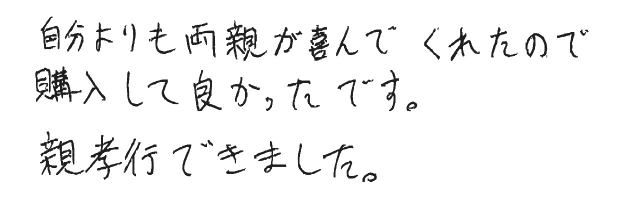 自分よりも両親が喜んでくれたので
購入して良かったです。
親孝行できました。